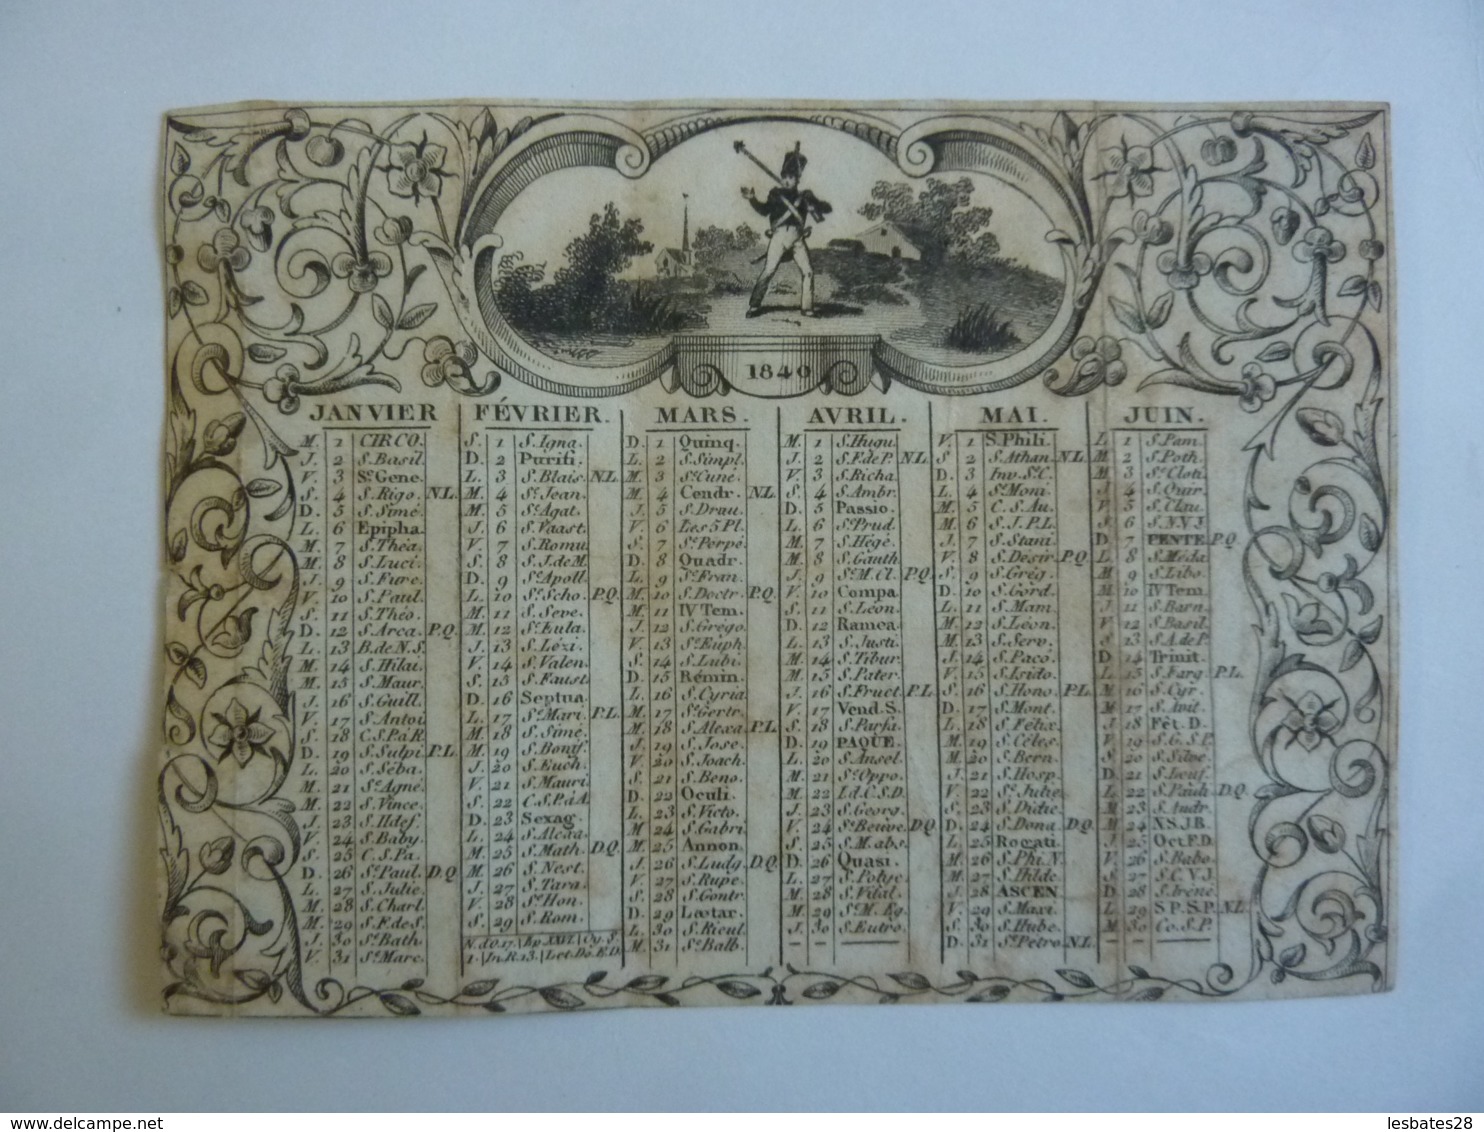 1840
JANVIER
M. 1 CIRCO.
J. 2 S. Basil.
V. 3 Ste Gene.
S. 4 S. Rigo. N.L.
D. 5 S. Simé.
L. 6 Epipha.
M. 7 S. Théa.
M. 8 S. Luci.
J. 9 S. Furc.
V. 10 S. Paul.
S. 11 S. Théo.
D. 12 S. Arca. P.Q.
L. 13 B. de N.S.
M. 14 S. Hilai.
M. 15 S. Maur.
J. 16 S. Guill.
V. 17 S. Antoi
S. 18 C.S.P.à R.
D. 19 S. Sulpi. P.L.
L. 20 S. Séba.
M. 21 Ste Agné.
M. 22 S. Vince.
J. 23 S. Ildef.
V. 24 S. Baby.
S. 25 C.S. Pa.
D. 26 Ste Paul. D.Q.
L. 27 S. Julie.
M. 28 S. Charl.
M. 29 S. F. de S.
J. 30 Ste Bath.
V. 31 Ste Marc.
FÉVRIER.
S. 1 S. Igna.
D. 2 Purifi.
L. 3 S. Blais. N.L.
M. 4 Ste Jean.
M. 5 Ste Agat.
J. 6 S. Vaast.
V. 7 S. Romu.
S. 8 S. J. de M.
D. 9 Ste Apoll.
L. 10 Ste Scho. P.Q.
M. 11 S. Seve.
M. 12 Ste Eula.
J. 13 S. Lézi.
V. 14 S. Valen.
S. 15 S. Faust.
D. 16 Septua.
L. 17 Ste Mari. P.L.
M. 18 S. Simé.
M. 19 S. Bonif.
J. 20 S. Euch.
V. 21 S. Mauri.
S. 22 C.S.P.à A.
D. 23 Sexag.
L. 24 S. Alcaa.
M. 25 S. Math. D.Q.
M. 26 S. Nest.
J. 27 S. Tara.
V. 28 Ste Hon.
S. 29 S. Rom.
N. d'O. 17. Ep. XXVI. Cy. S.
1. In. R. 13. Let. Do. E.D.
MARS.
D. 1 Quinq.
L. 2 S. Simpl.
M. 3 Ste Cuné.
M. 4 Cendr. N.L.
J. 5 S. Drau.
V. 6 Les 5 Pl.
S. 7 Ste Perpé.
D. 8 Quadr.
L. 9 S. Fran.
M. 10 S. Doctr. P.Q.
M. 11 IV Tem.
J. 12 S. Grégo.
V. 13 Ste Euph.
S. 14 S. Lubi.
D. 15 Rémin.
L. 16 S. Cyria.
M. 17 Ste Gertr.
M. 18 S. Alexa. P.L.
J. 19 S. Jose.
V. 20 S. Joach.
S. 21 S. Beno.
D. 22 Oculi.
L. 23 S. Victo.
M. 24 S. Gabri.
M. 25 Annon.
J. 26 S. Ludg. D.Q.
V. 27 S. Rupe.
S. 28 S. Gontr.
D. 29 Lætar.
L. 30 S. Rieul.
M. 31 Ste Balb.
AVRIL.
M. 1 S. Hugu.
J. 2 S. F. de P. N.L.
V. 3 S. Richa.
S. 4 S. Ambr.
D. 5 Passio.
L. 6 Ste Prud.
M. 7 S. Hégé.
M. 8 S. Gauth.
J. 9 Ste M. Cl. P.Q.
V. 10 Compa.
S. 11 S. Léon.
D. 12 Ramea.
L. 13 S. Justi.
M. 14 S. Tibur.
M. 15 S. Pater.
J. 16 S. Fruct. P.L.
V. 17 Vend. S.
S. 18 S. Parfa.
D. 19 PAQUE.
L. 20 S. Ansel.
M. 21 Ste Oppo.
M. 22 I.d.C.S.D.
J. 23 S. Georg.
V. 24 Ste Beuve. D.Q.
S. 25 S. M. abs.
D. 26 Quasi.
L. 27 S. Polyc.
M. 28 S. Vital.
M. 29 Ste M. Eg.
J. 30 S. Eutro.
MAI.
V. 1 S. Phili.
S. 2 S. Athan. N.L.
D. 3 Inv. Ste C.
L. 4 Ste Moni.
M. 5 C.S. Au.
M. 6 S.J.P.L.
J. 7 S. Stani.
V. 8 S. Désir. P.Q.
S. 9 S. Grég.
D. 10 S. Gord.
L. 11 S. Mam.
M. 12 S. Léon.
M. 13 S. Serv.
J. 14 S. Paco.
V. 15 S. Isido.
S. 16 S. Hono. P.L.
D. 17 S. Mont.
L. 18 S. Félix.
M. 19 S. Céles.
M. 20 S. Bern.
J. 21 S. Hosp.
V. 22 Ste Julie.
S. 23 S. Didie.
D. 24 S. Dona. D.Q.
L. 25 Rogati.
M. 26 S. Phi. N.
M. 27 S. Hilde.
J. 28 ASCEN.
V. 29 S. Maxi.
S. 30 S. Hube.
D. 31 Ste Petro. N.L.
JUIN.
L. 1 S. Pam.
M. 2 S. Poth.
M. 3 Ste Cloti.
J. 4 S. Quir.
V. 5 S. Clau.
S. 6 S. N.V.J.
D. 7 PENTE. P.Q.
L. 8 S. Méda.
M. 9 S. Libo.
M. 10 IV Tem.
J. 11 S. Barn.
V. 12 S. Basil.
S. 13 S.A. de P.
D. 14 Trinit.
L. 15 S. Farg. P.L.
M. 16 S. Cyr.
M. 17 S. Avit.
J. 18 Fêt. D.
V. 19 S.G.S.P.
S. 20 S. Silve.
D. 21 S. Leuf.
L. 22 S. Pauli. D.Q.
M. 23 S. Audr.
M. 24 N.S.J.B.
J. 25 Oct. F.D.
V. 26 S. Babo.
S. 27 S.C.V.J.
D. 28 S. Iréné.
L. 29 S.P.S.P. N.L.
M. 30 Co. S.P.
www.delcampe.net
lesbates28